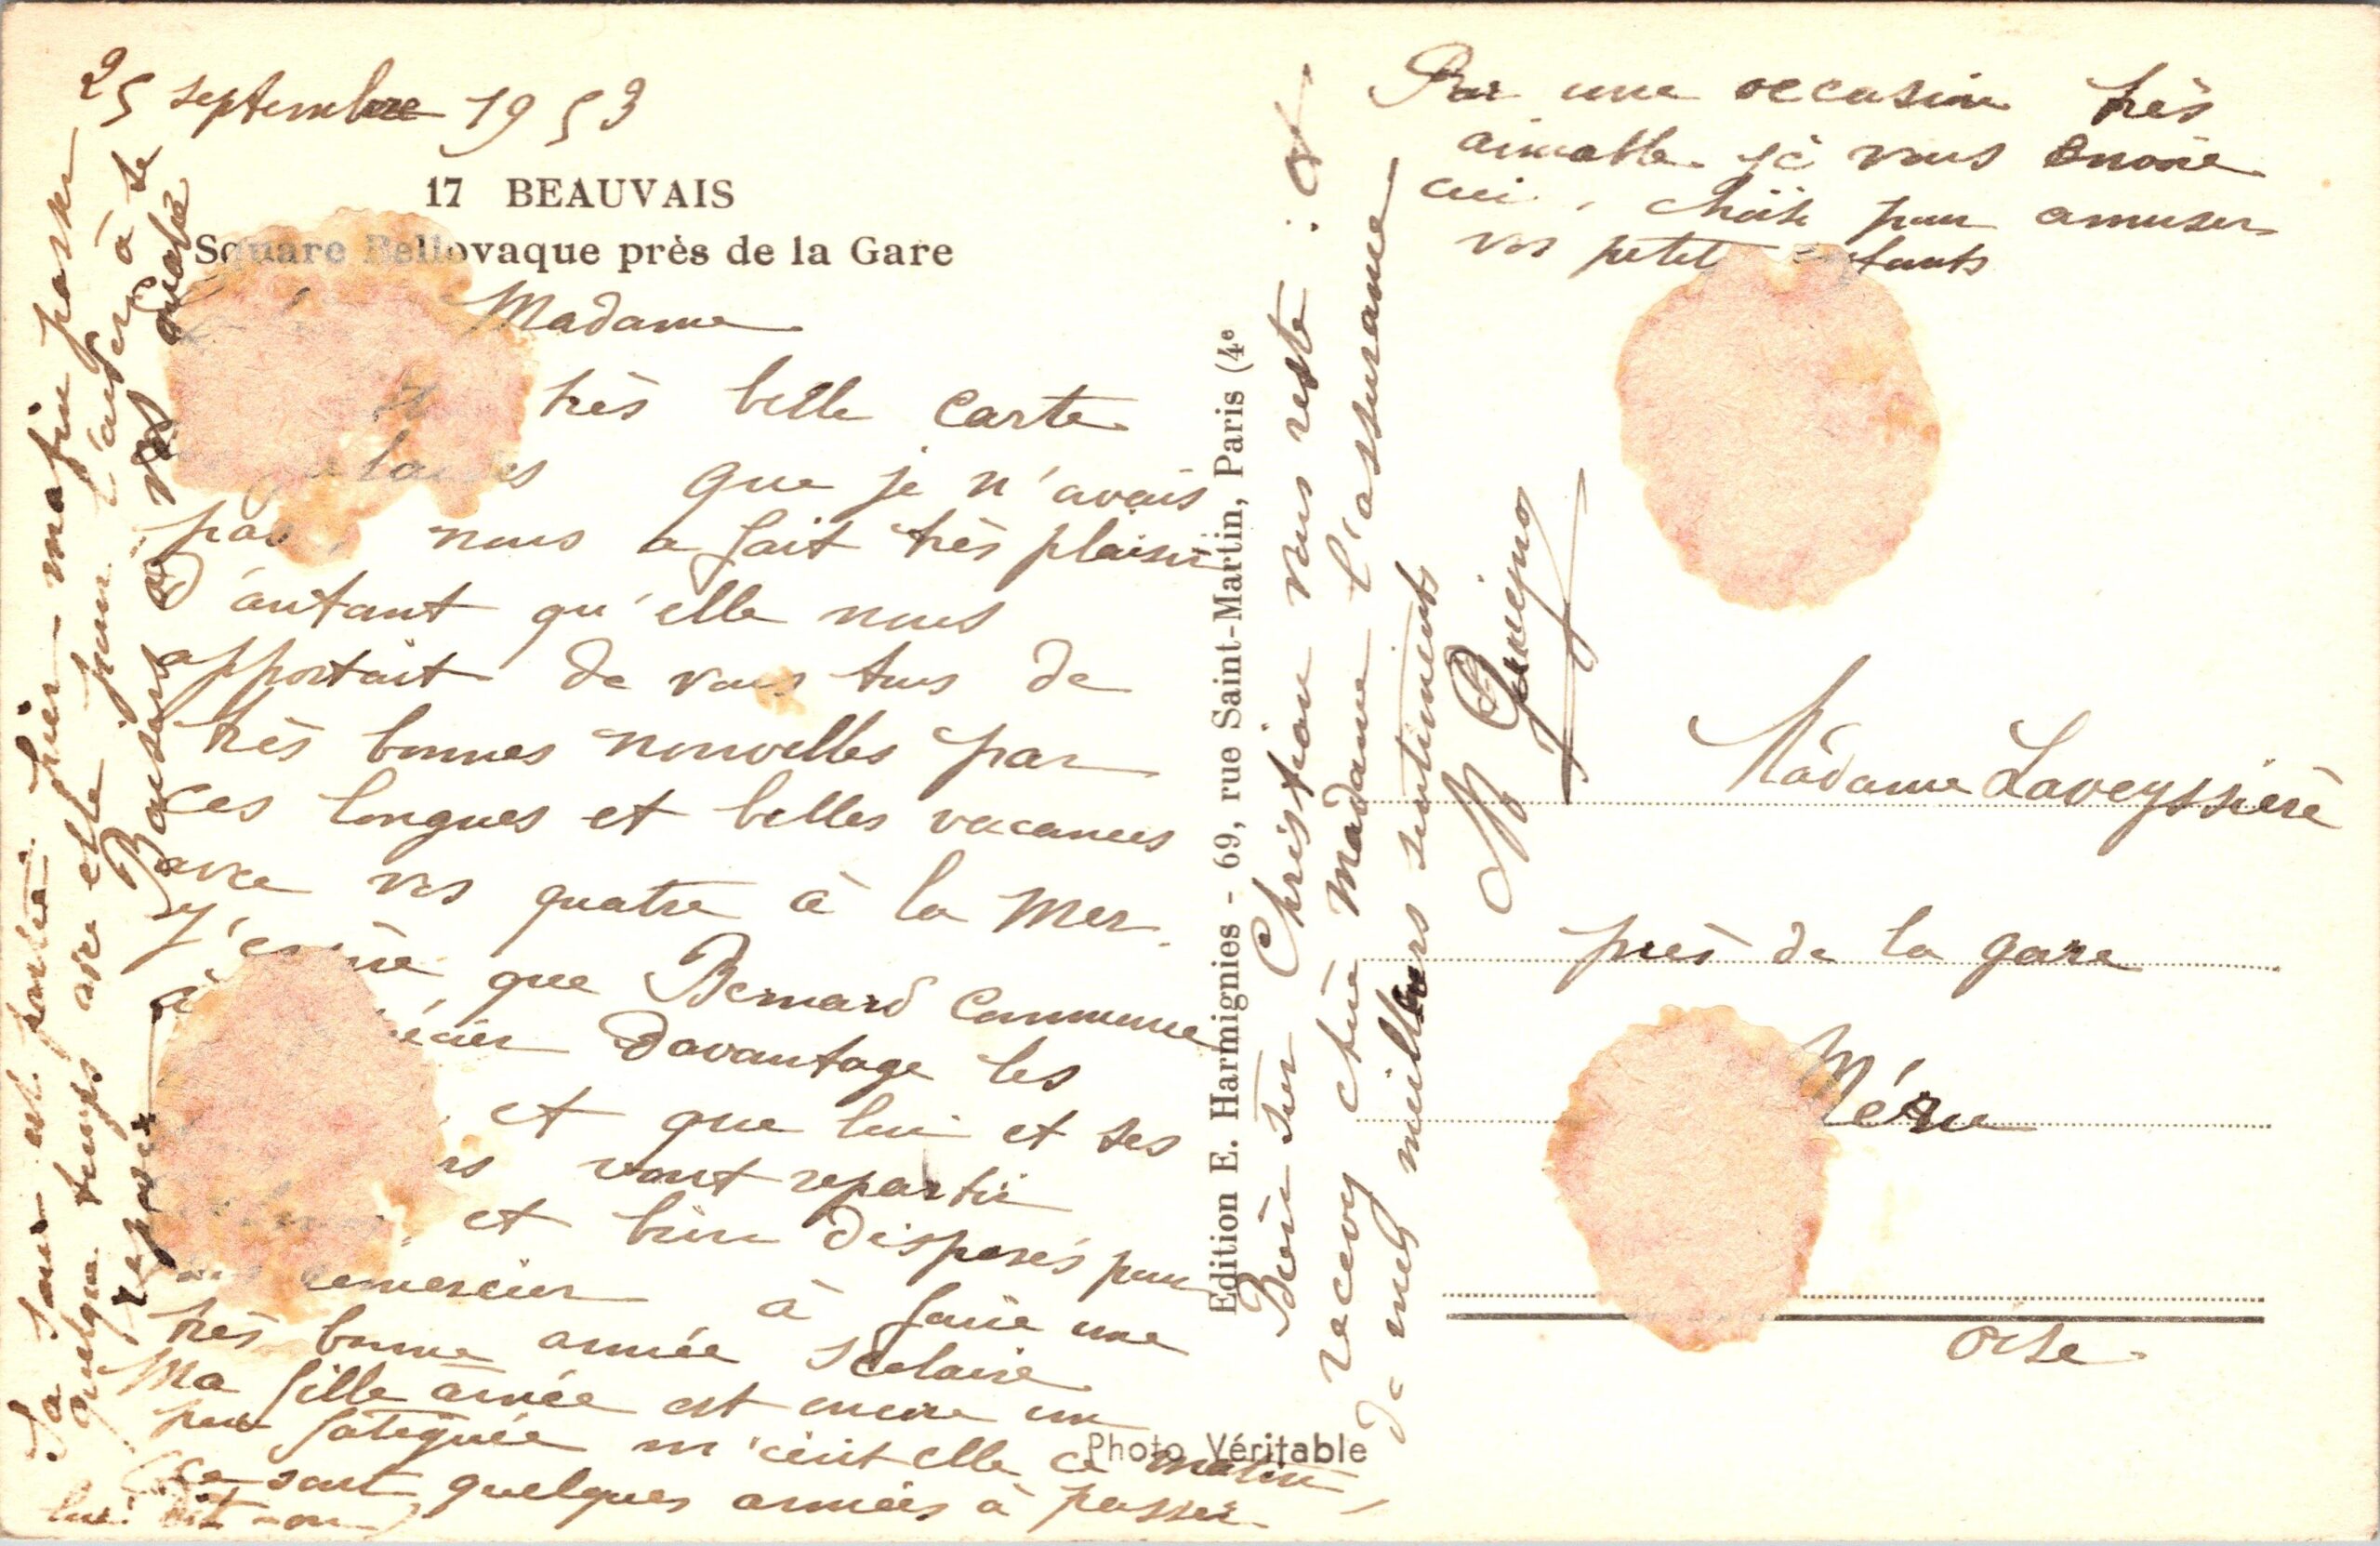 25 septembre 1953
17 BEAUVAIS
Square Bellovaque près de la Gare
Madame
très belle carte
que je n'avais
pas, nous a fait très plaisir
d'autant qu'elle nous
apportait de vous tous de
très bonnes nouvelles par
ces longues et belles vacances
avec vos quatre à la Mer.
J'espère que Bernard commence
à davantage les
et que lui et ses
vont repartir
et bien disposés pour
remercier à faire une
très bonne année scolaire
Ma fille aînée est encore un
peu fatiguée m'écrit elle ce matin,
(ce sont quelques années à passer
lui dit-on)
Sa soeur est partie hier matin passer
quelque temps avec elle pour l'aider à se
reposer
Baisers à vos quatre
Edition E. Harmignies - 69, rue Saint-Martin, Paris (4e
Photo Véritable
Bien sûr Christian vous reste :
recevez chère Madame l'assurance
de mes meilleurs sentiments
M
Par une occasion très
aimable je vous envoie
ceci, choisi pour amuser
vos petits enfants
Madame Laveyssière
près de la gare
Méru
Oise